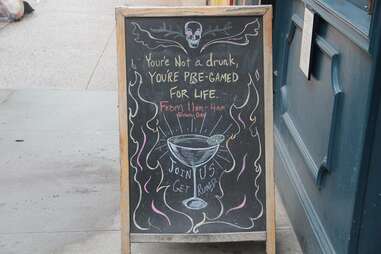 You're Not a drunk,
YOU'RE PRE-GAMED
FOR LIFE.
From 11am-4am
JOIN US!
GET